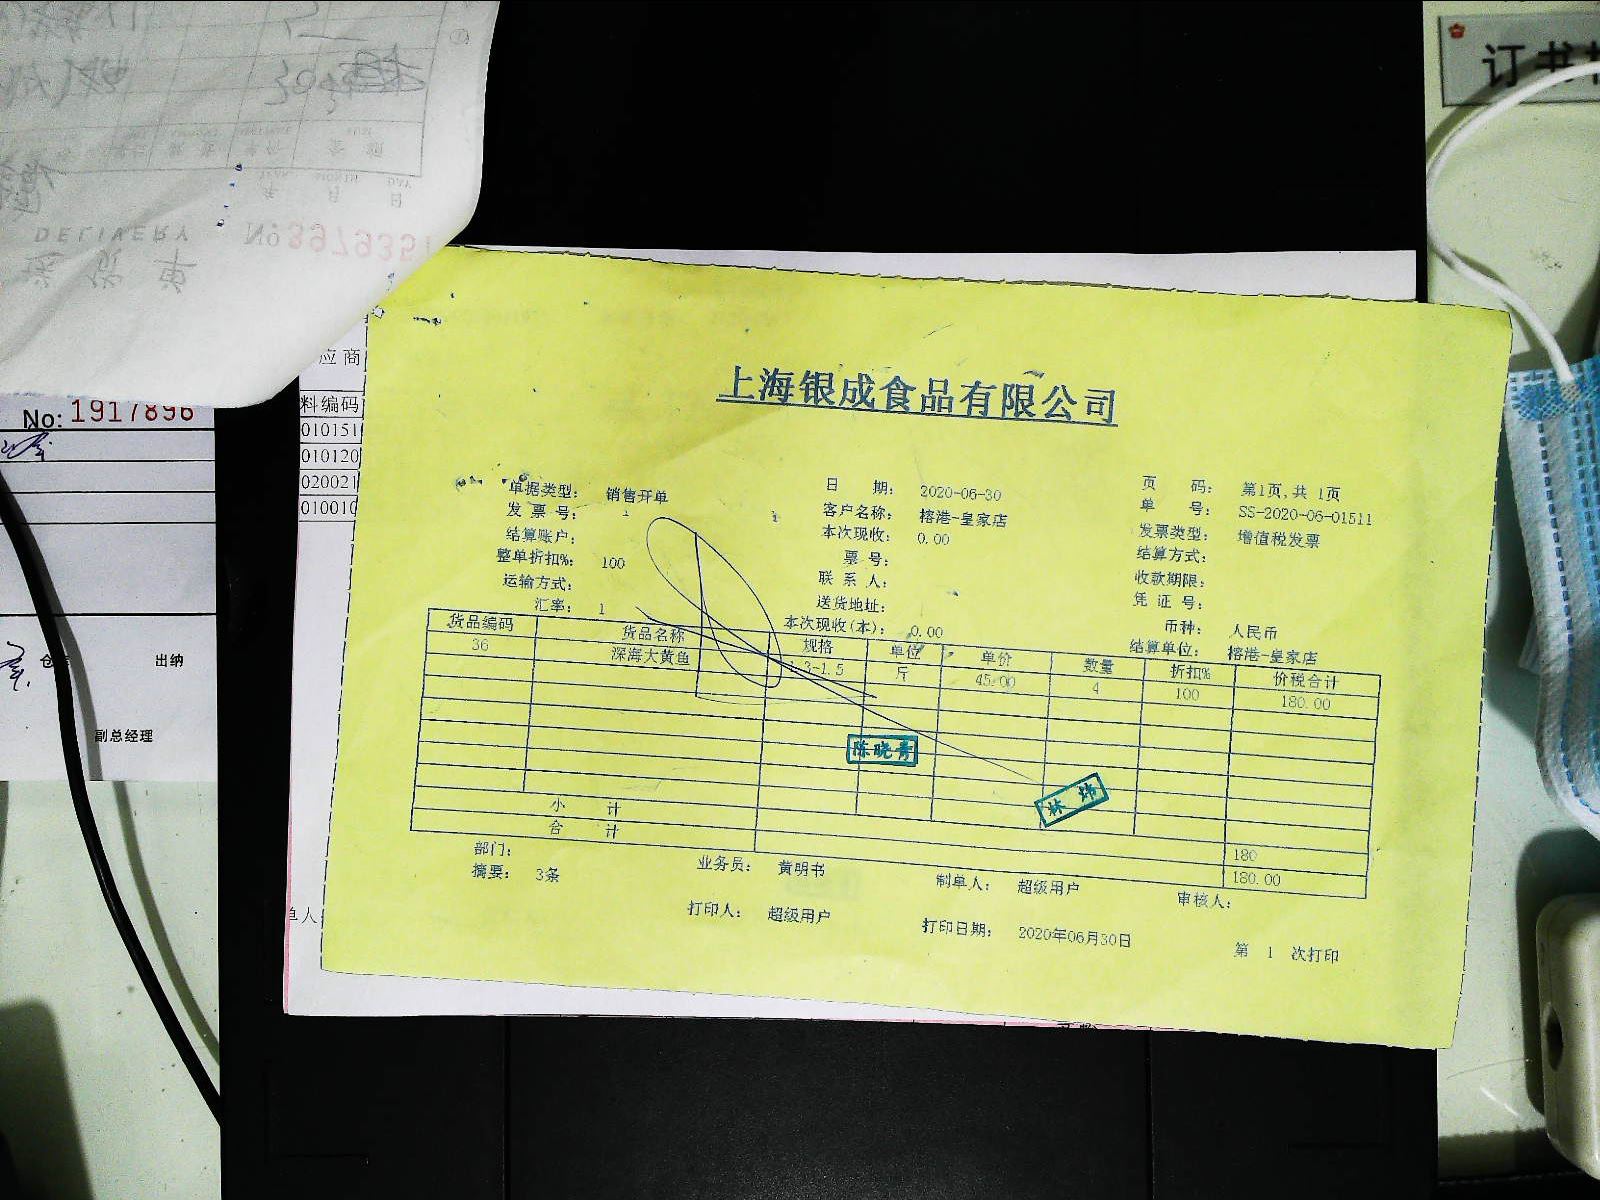 订书
DELIVERY
No 3979351
No: 1917896
仓 出纳
副总经理
应商
料编码
010151
010120
020021
010010
单人
上海银成食品有限公司
单据类型： 销售开单 日 期： 2020-06-30 页 码： 第1页,共 1页
发 票 号： 1 客户名称： 榕港-皇家店 单 号： SS-2020-06-01511
结算账户： 本次现收： 0.00 发票类型： 增值税发票
整单折扣%： 100 票 号： 结算方式：
运输方式： 联 系 人： 收款期限：
汇率： 1 送货地址： 凭 证 号：
本次现收(本)： 0.00 币种： 人民币
结算单位： 榕港-皇家店
货品编码 货品名称 规格 单位 单价 数量 折扣% 价税合计
36 深海大黄鱼 1.3-1.5 斤 45.00 4 100 180.00
陈晓青
林炜
小 计 180
合 计 180.00
部门： 业务员： 黄明书 制单人： 超级用户 审核人：
摘要： 3条
打印人： 超级用户 打印日期： 2020年06月30日 第 1 次打印